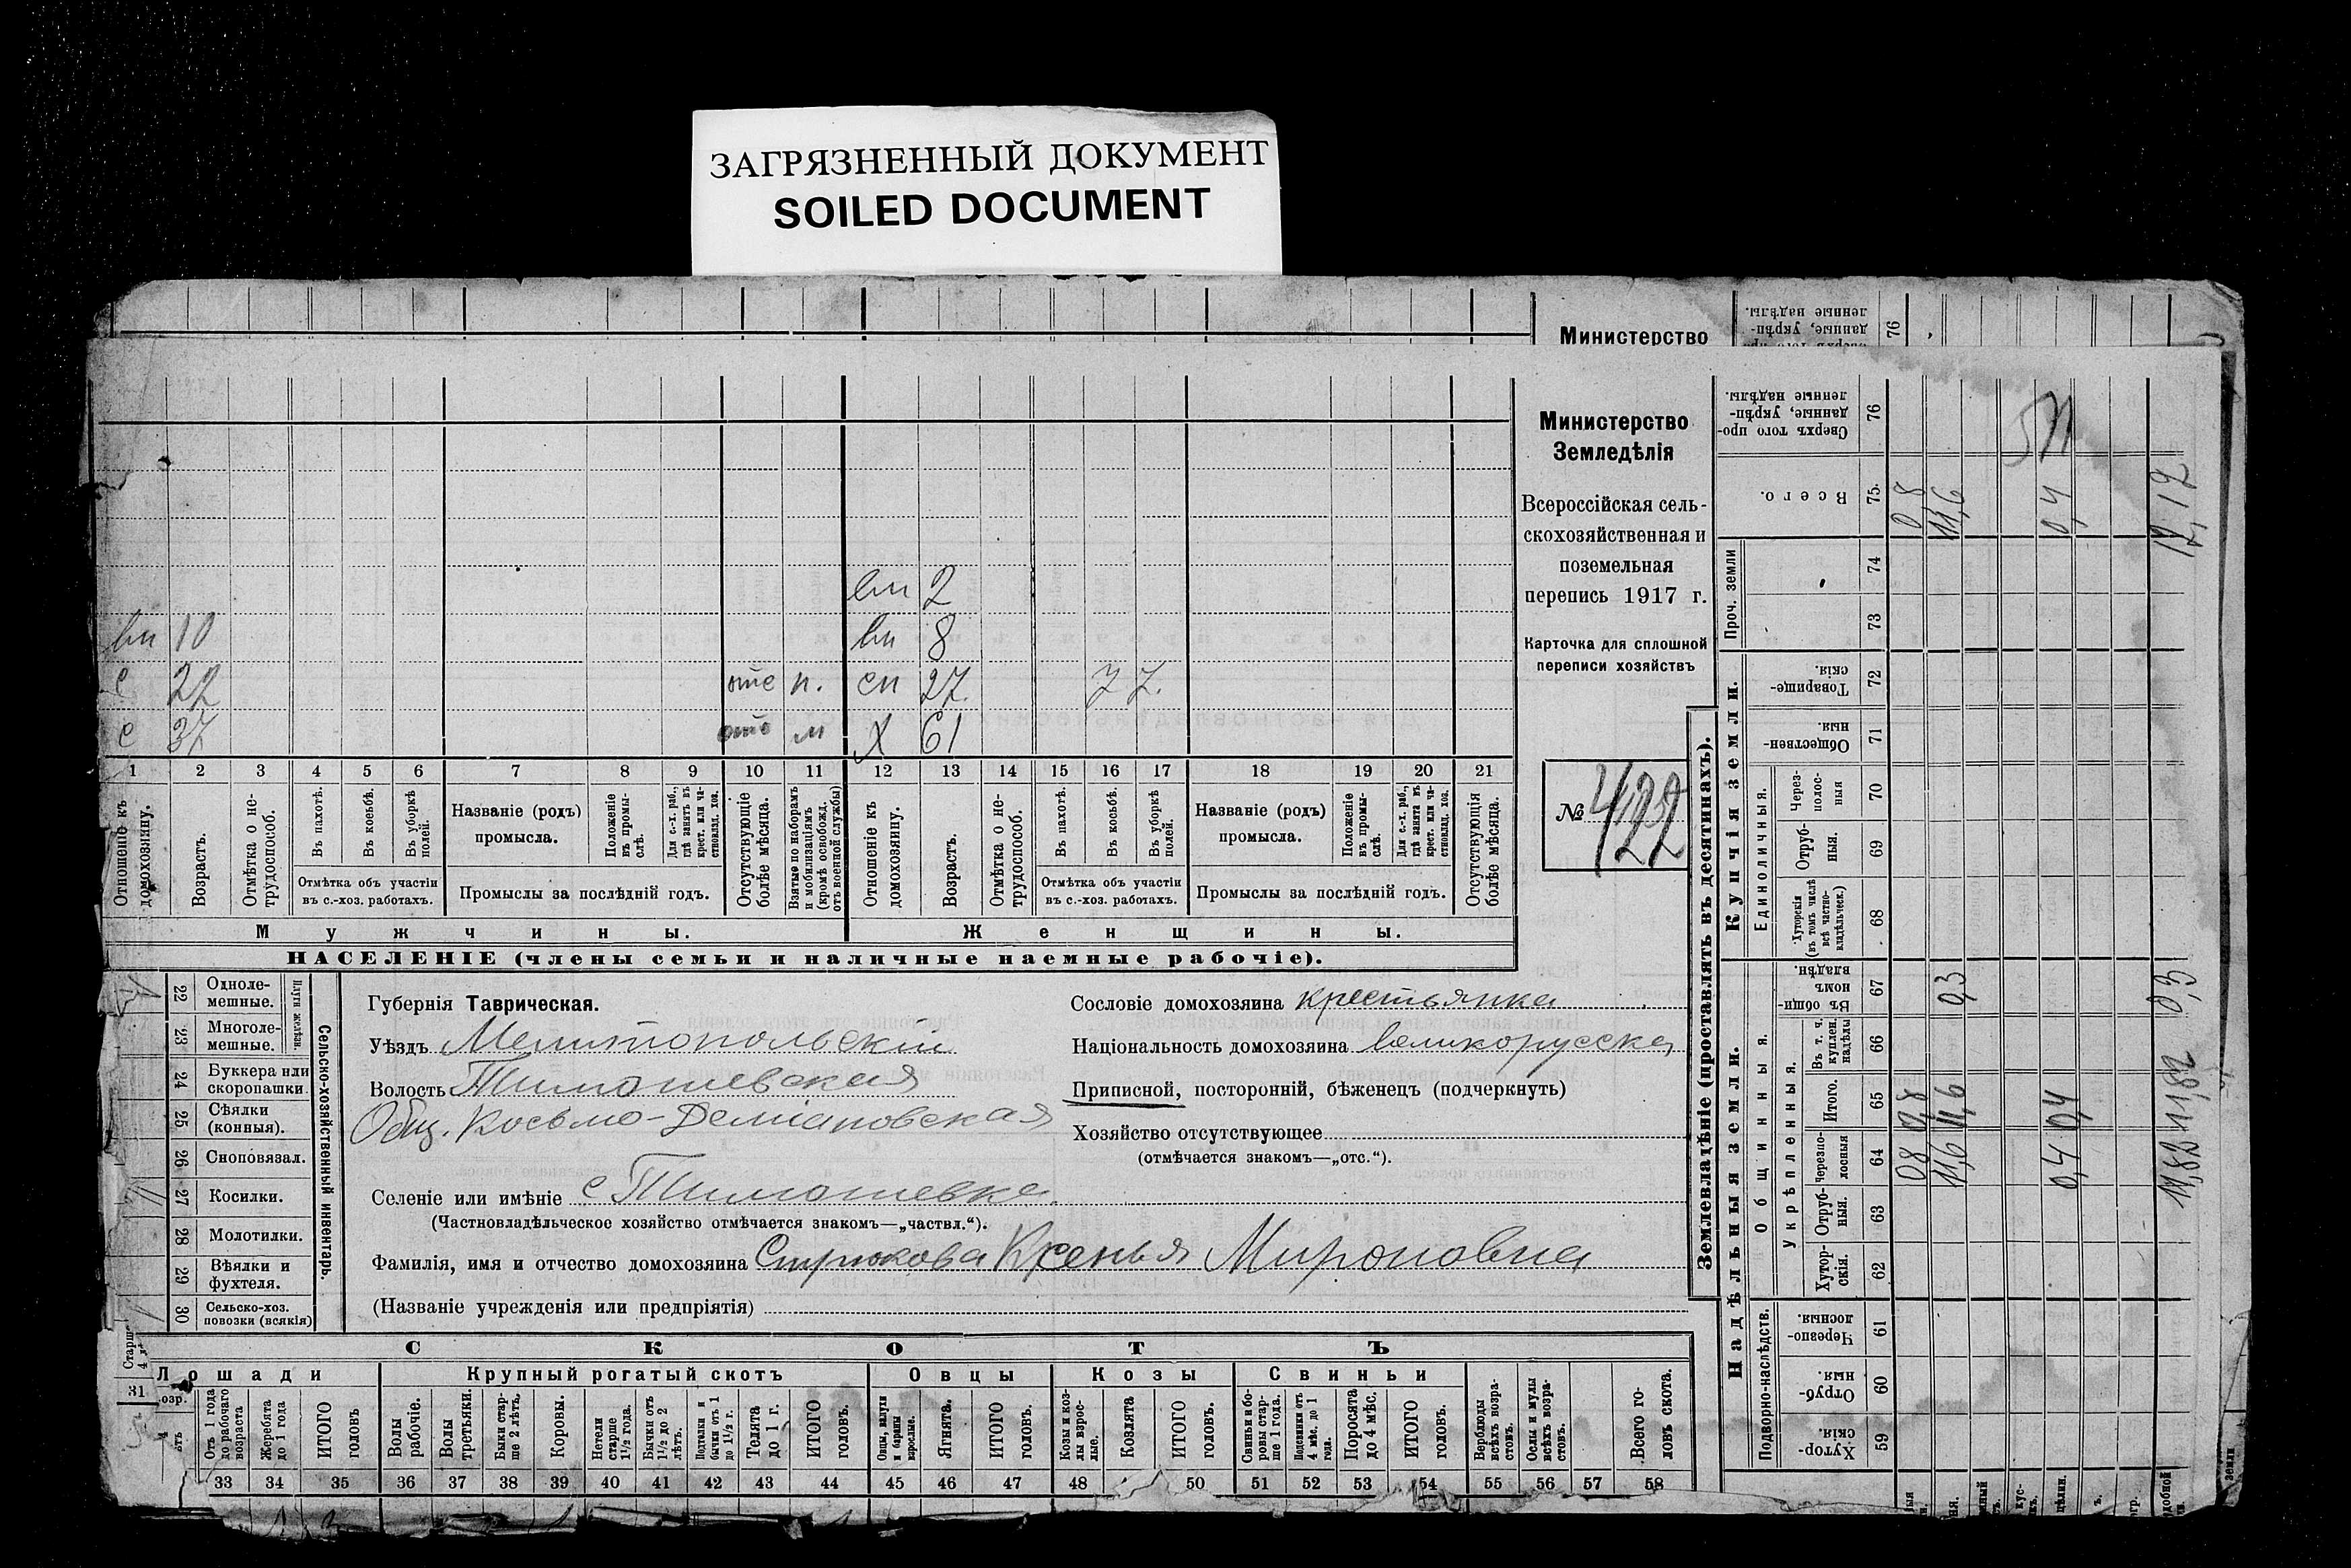 ЗАГРЯЗНЕННЫЙ ДОКУМЕНТ
SOILED DOCUMENT
Министерство
76
вп 2
вп 10 вп 8
с 22 отс п. сп 27
с 37 отс м X 61
1 2 3 4 5 6 7 8 9 10 11 12 13 14 15 16 17 18 19 20 21
Отношеніе къ домохозяину.
Возрастъ.
Отмѣтка о не-трудоспособ.
Въ пахотѣ.
Въ косьбѣ.
Въ уборкѣ полей.
Отмѣтка объ участіи
въ с.-хоз. работахъ.
Названіе (родъ)
промысла.
Положеніе въ промы-слѣ.
Для с.-х. раб., гдѣ занятъ въ крест. или ча-стновлад. хоз.
Промыслы за послѣдній годъ.
Отсутствующіе болѣе мѣсяца.
Взятые по наборамъ и мобилизаціямъ (кромѣ освобожд. отъ военной службы)
Отношеніе къ домохозяину.
Возрастъ.
Отмѣтка о не-трудоспособ.
Въ пахотѣ.
Въ косьбѣ.
Въ уборкѣ полей.
Отмѣтка объ участіи
въ с.-хоз. работахъ.
Названіе (родъ)
промысла.
Положеніе въ промы-слѣ.
Для с.-х. раб., гдѣ занята въ крест. или ча-стновлад. хоз.
Промыслы за послѣдній годъ.
Отсутствующія болѣе мѣсяца.
Мужчины.
Женщины.
НАСЕЛЕНІЕ (члены семьи и наличные наемные рабочіе).
Министерство
Земледѣлія
Всероссійская сель-
скохозяйственная и
поземельная
перепись 1917 г.
Карточка для сплошной
переписи хозяйствъ
№ 422
22 Одноле-мешные.
23 Многоле-мешные.
Плуги желѣзн.
24 Буккера или скоропашки.
25 Сѣялки (конныя).
26 Сноповязал.
27 Косилки.
28 Молотилки.
29 Вѣялки и фухтеля.
30 Сельско-хоз. повозки (всякія)
Сельско-хозяйственный инвентарь.
Губернія Таврическая.
Уѣздъ Мелитопольскій
Волость Тимошевская
Общ. Косьмо-Деміановская
Селеніе или имѣніе с Тимошевка.
(Частновладѣльческое хозяйство отмѣчается знакомъ—„частвл.“).
Фамилія, имя и отчество домохозяина Стрюкова Ксенья Мироновна
(Названіе учрежденія или предпріятія)
Сословіе домохозяина крестьянка
Національность домохозяина великорусска
Приписной, посторонній, бѣженецъ (подчеркнуть)
Хозяйство отсутствующее
(отмѣчается знакомъ—„отс.“).
СКОТЪ
Лошади
Крупный рогатый скотъ
Овцы
Козы
Свиньи
Отъ 1 года до рабочаго возраста
Жеребята до 1 года
ИТОГО головъ
Волы рабочіе.
Волы третьяки.
Быки стар-ше 2 лѣтъ.
Коровы.
Нетели старше 1½ года.
Бычки отъ 1½ до 2 лѣтъ.
Подтелки и бычки отъ 1 до 1½ г.
Телята до 1 г.
ИТОГО головъ.
Овцы, валухи и бараны взрослые.
Ягнята.
ИТОГО головъ.
Козы и коз-лы взрос-лые.
Козлята
ИТОГО головъ.
Свиньи и бо-ровы стар-ше 1 года.
Подсвинки отъ 4 мѣс. до 1 года.
Поросята до 4 мѣс.
ИТОГО головъ.
Верблюды всѣхъ возра-стовъ.
Ослы и мулы всѣхъ возра-стовъ.
Всего го-ловъ скота.
31 33 34 35 36 37 38 39 40 41 42 43 44 45 46 47 48 50 51 52 53 54 55 56 57 58
Землевладѣніе (проставлять въ десятинахъ).
Надѣльныя земли.
Купчія земли.
Проч. земли
Подворно-наслѣдств.
Общинныя.
Укрѣпленныя.
Единоличныя.
Сверхъ того про-данные, укрѣп-ленные надѣлы. 76
Всего. 75. 0,8 11,6 0,4 12,12
74
73
Товарище-скія. 72
Обществен-ныя. 71
Через-полос-ныя 70
Отруб-ныя. 69
Хуторскія (въ томъ числѣ всѣ частно-владѣльческ.) 68
Въ общин-номъ владѣн. 67 0,3 0,3
Въ т. ч. куплен. надѣлы 66
Итого. 65 0,8 11,6 0,4 11,82
Черезпо-лосныя 64 0,8 11,6 0,4 11,82
Отруб-ныя. 63
Хутор-скія. 62
Черезпо-лосныя. 61
Отруб-ныя. 60
Хутор-скія. 59